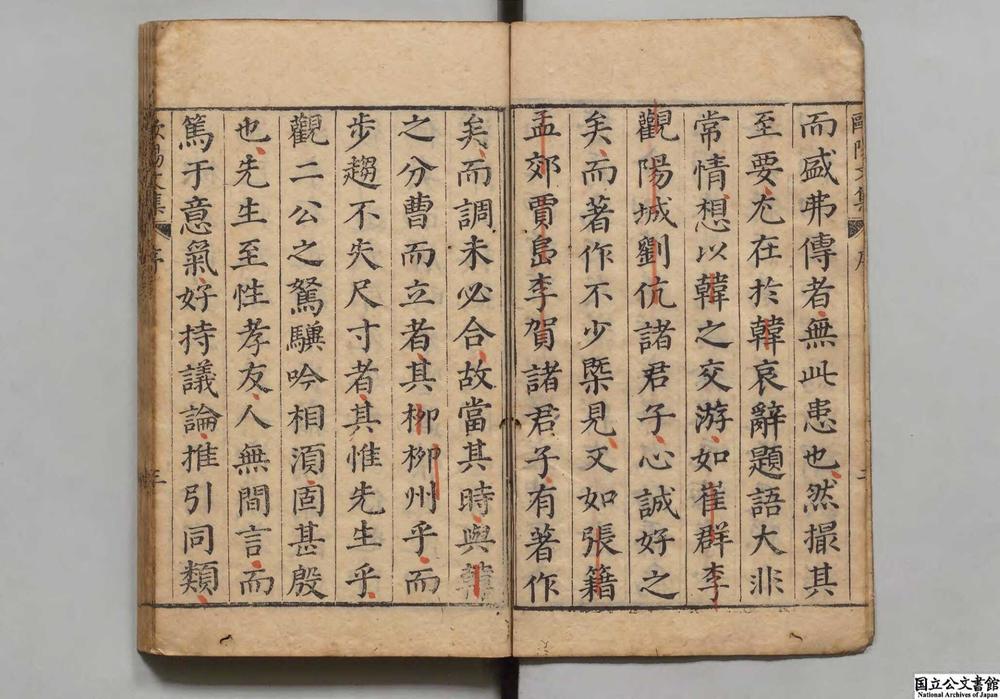 而盛弗傳者無此患也然撮其
至要尤在於韓哀辭題語大非
常情想以韓之交游如崔群李
觀陽城劉伉諸君子心誠好之
矣而著作不少槩見又如張籍
孟郊賈島李賀諸君子有著作
矣而調未必合故當其時與韓
之分曹而立者其柳柳州乎而
步趨不失尺寸者其惟先生乎
觀二公之駑驥吟相須固甚殷
也先生至性孝友人無間言而
篤于意氣好持議論推引同類
歐陽文集 序
国立公文書館
National Archives of Japan